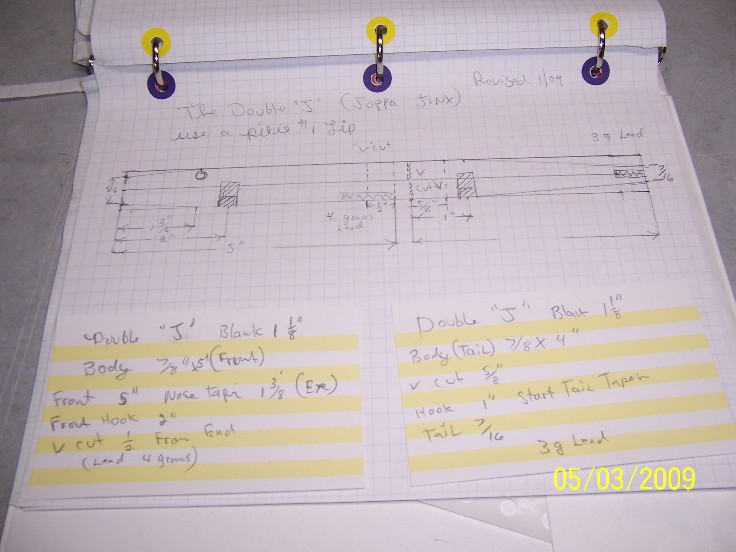 Revised 1/09
The Double "J" (Joppa Jinx)
use a #1 Lip
3g Lead
"V" cut
V
cut
7/16
1/2"
5/8"
1"
4 grams
Lead
1 3/8"
2"
5"
Double "J" Blank 1 1/8"
Body 7/8" x 5" (Front)
Front 5" Nose taper 1 3/8" (Eye)
Front Hook 2"
V cut 1/2 From End
(Lead 4 grams)
Double "J" Blank 1 1/8"
Body (Tail) 7/8 x 4"
V cut 5/8"
Hook 1" Start Tail Taper
Tail 7/16
3g Lead
05/03/2009